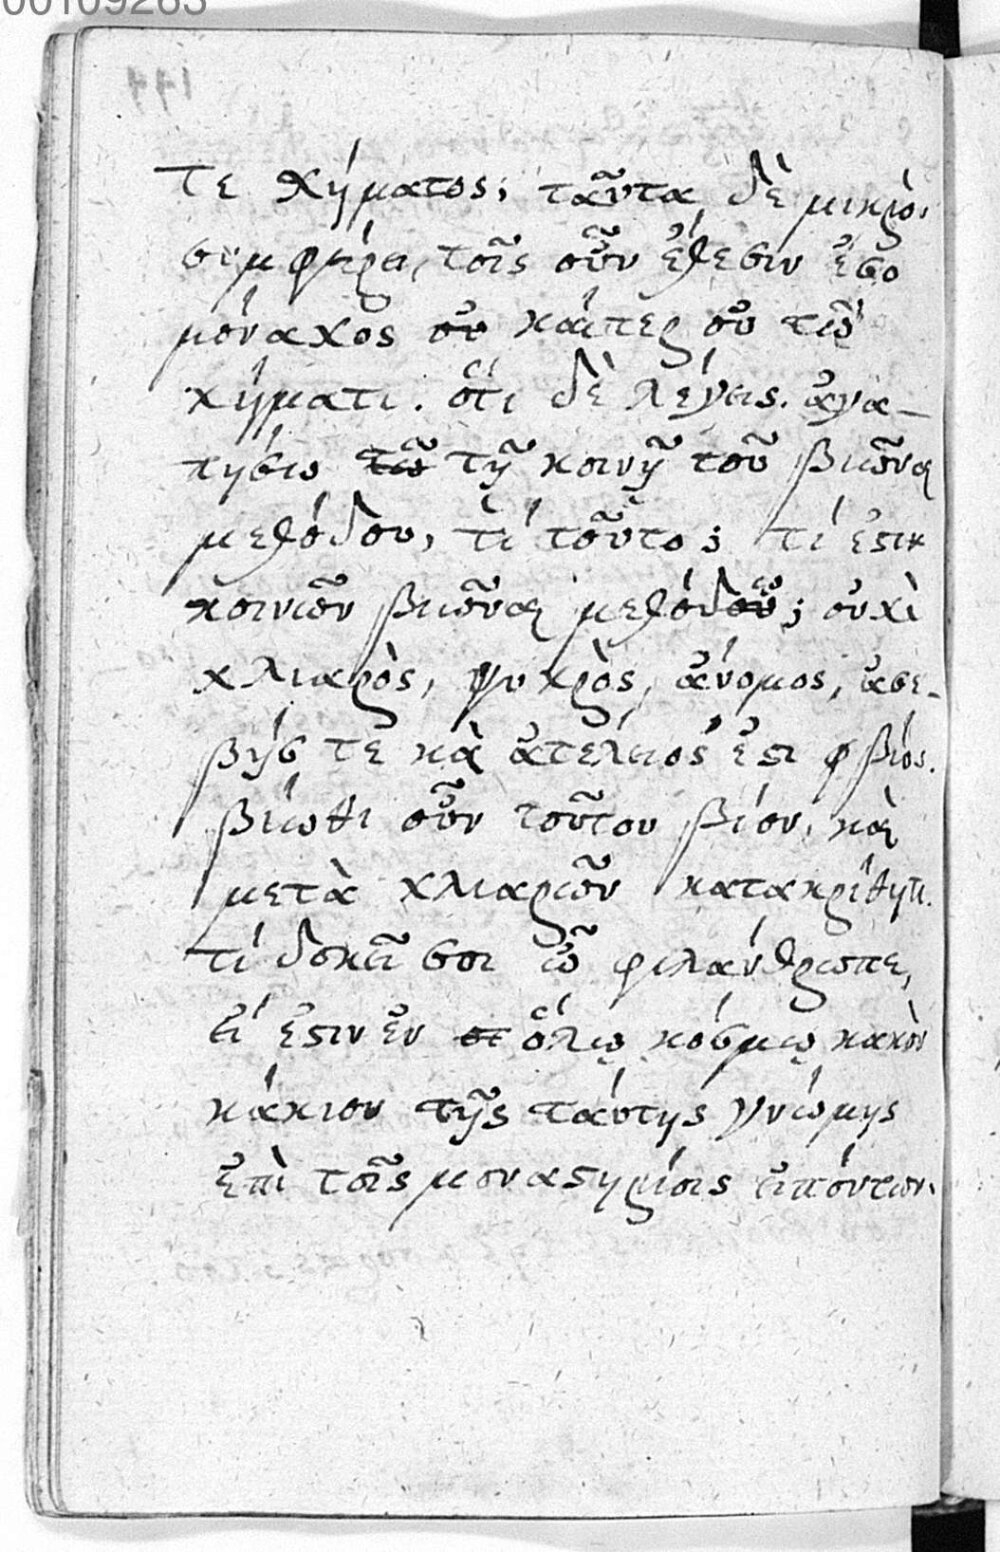 00109263
τε χήματος, ταῦτα δὲ μικρο,
συμφέρει, τοῖς οὖν ἔθεσιν ἔσο
μόναχος οὐ καίπερ οὐ τῶ
χήματι. ὅτι δὲ λέγεις. ἀγα-
πήσω τῶ τῆ κοινῆ τοῦ βιῶναι
μεθόδου, τί τοῦτο; τί ἐστι
κοινῶν βιῶναι μεθόδου; οὐχὶ
χλιαρὸς, ψυχρὸς, ἄνομος, ἀσε-
βής τε κὰ ἀτέλειός ἐστι ὁ βίος.
βίωθι οὖν τοῦτον βίον, καὶ
μετὰ χλιαρῶν κατακρίθητι.
τί δοκεῖ σοι ὦ φιλάνθρωπε,
εἴ ἐστιν ἐν ὅλῳ κόσμῳ κακὸν
κάκιον τῆς ταύτης γνώμης
ἐπὶ τοῖς μοναστηρίοις εἰπόντων.